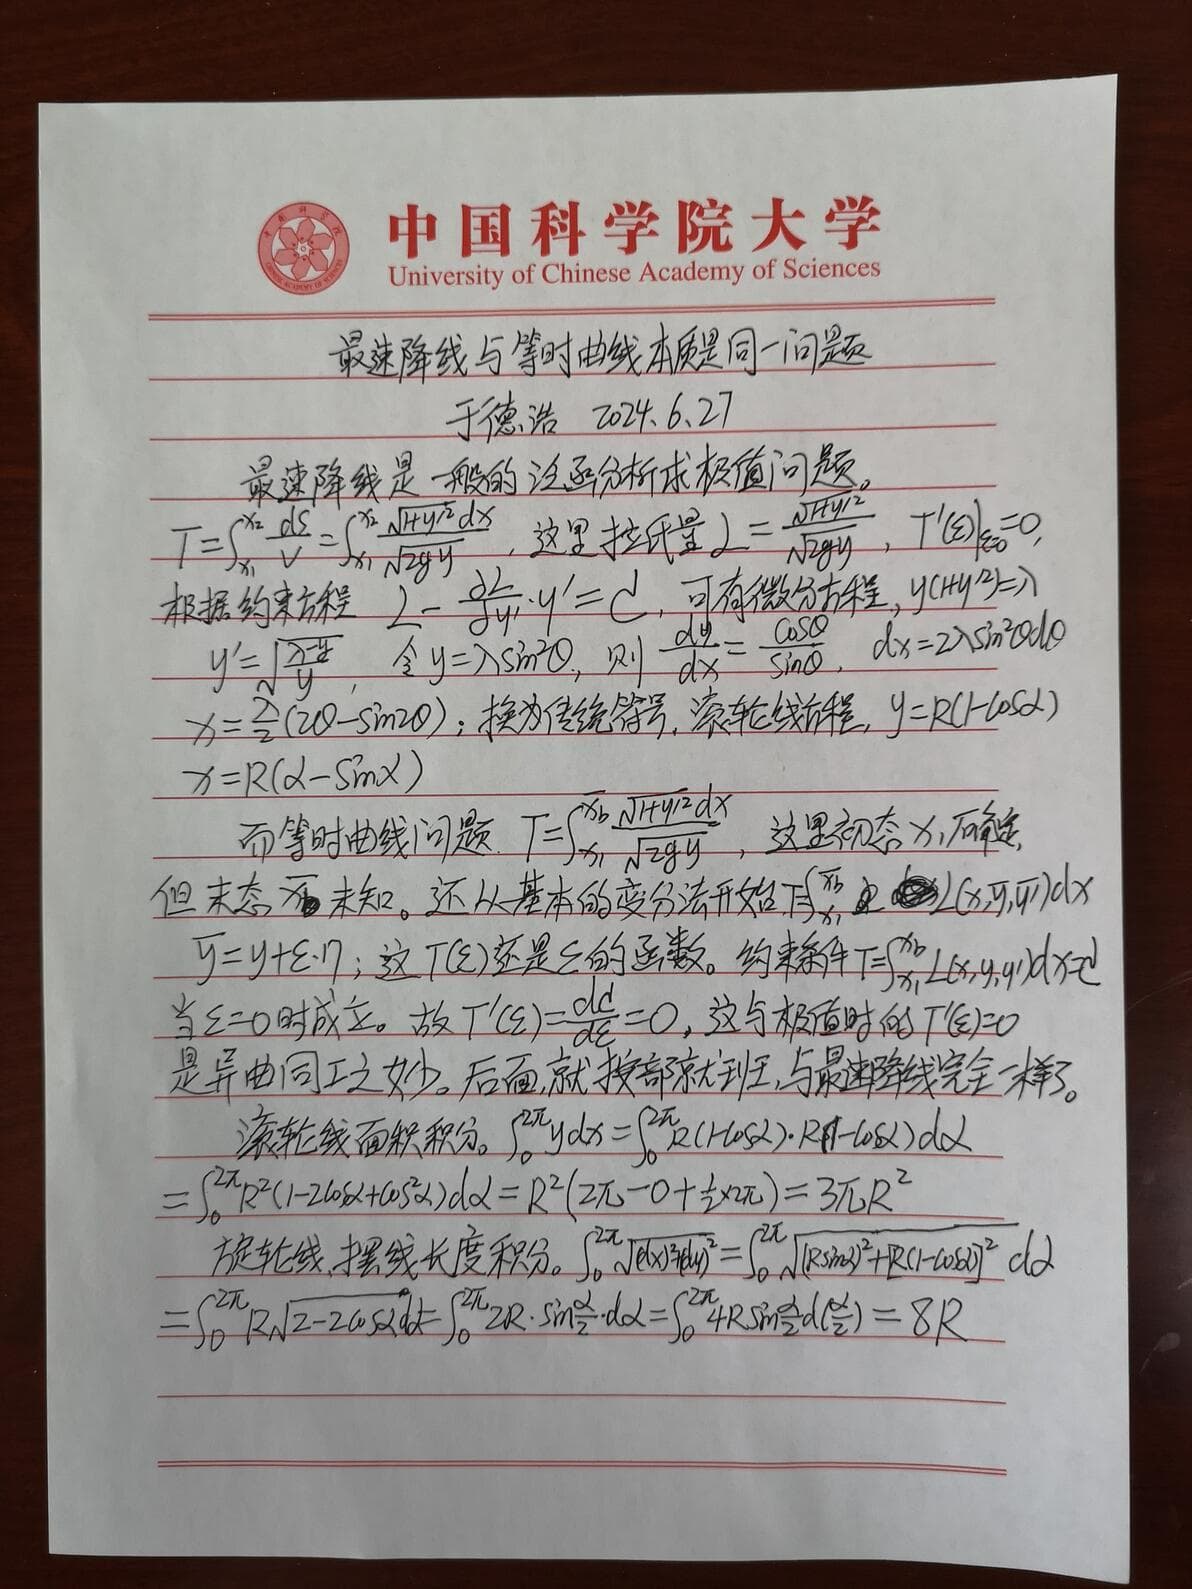 中国科学院大学
University of Chinese Academy of Sciences
最速降线与等时曲线本质是同一问题
于德浩 2024.6.27
最速降线是一般的泛函分析求极值问题。
T=∫_{x₁}^{x₂} ds/v = ∫_{x₁}^{x₂} √(1+y'²)dx/√(2gy)，这里拉氏量 L=√(1+y'²)/√(2gy)，T'(ε)|_{ε=0}=0，
根据约束方程 L-∂L/∂y'·y'=C，可有微分方程，y(1+y'²)=λ
y'=√((λ-y)/y)，令y=λsin²θ，则 dy/dx=cosθ/sinθ，dx=2λsin²θdθ
x=λ/2(2θ-sin2θ)；换为传统符号，滚轮线方程，y=R(1-cosα)
x=R(α-sinα)
而等时曲线问题，T=∫_{x₁}^{x̄_b} √(1+y'²)dx/√(2gy)，这里初态x₁确定，
但末态x̄_b未知。还从基本的变分法开始，T=∫_{x₁}^{x̄_b} L(x,ȳ,ȳ')dx
ȳ=y+ε·η；这T(ε)还是ε的函数。约束条件T=∫_{x₁}^{x_b}L(x,y,y')dx=C
当ε=0时成立。故T'(ε)=dC/dε=0，这与极值时的T'(ε)=0
是异曲同工之妙。后面，就按部就班，与最速降线完全一样了。
滚轮线面积积分。∫₀^{2π}ydx=∫₀^{2π}R(1-cosα)·R(1-cosα)dα
=∫₀^{2π}R²(1-2cosα+cos²α)dα=R²(2π-0+½×2π)=3πR²
旋轮线，摆线长度积分。∫₀^{2π}√((dx)²+(dy)²)=∫₀^{2π}√((Rsinα)²+[R(1-cosα)]²) dα
=∫₀^{2π}R√(2-2cosα)dα=∫₀^{2π}2R·sin(α/2)·dα=∫₀^{2π}4Rsin(α/2)d(α/2)=8R